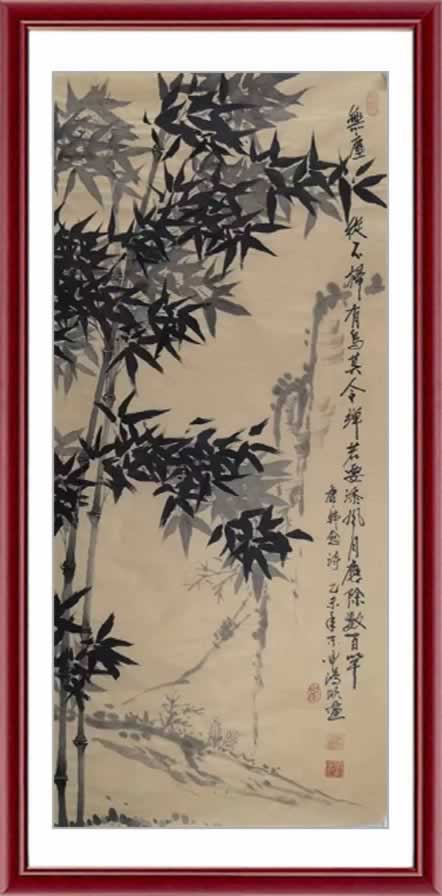 無塵從不掃有鳥莫令彈若要添風月應除數百竿
唐韓愈詩 乙未年